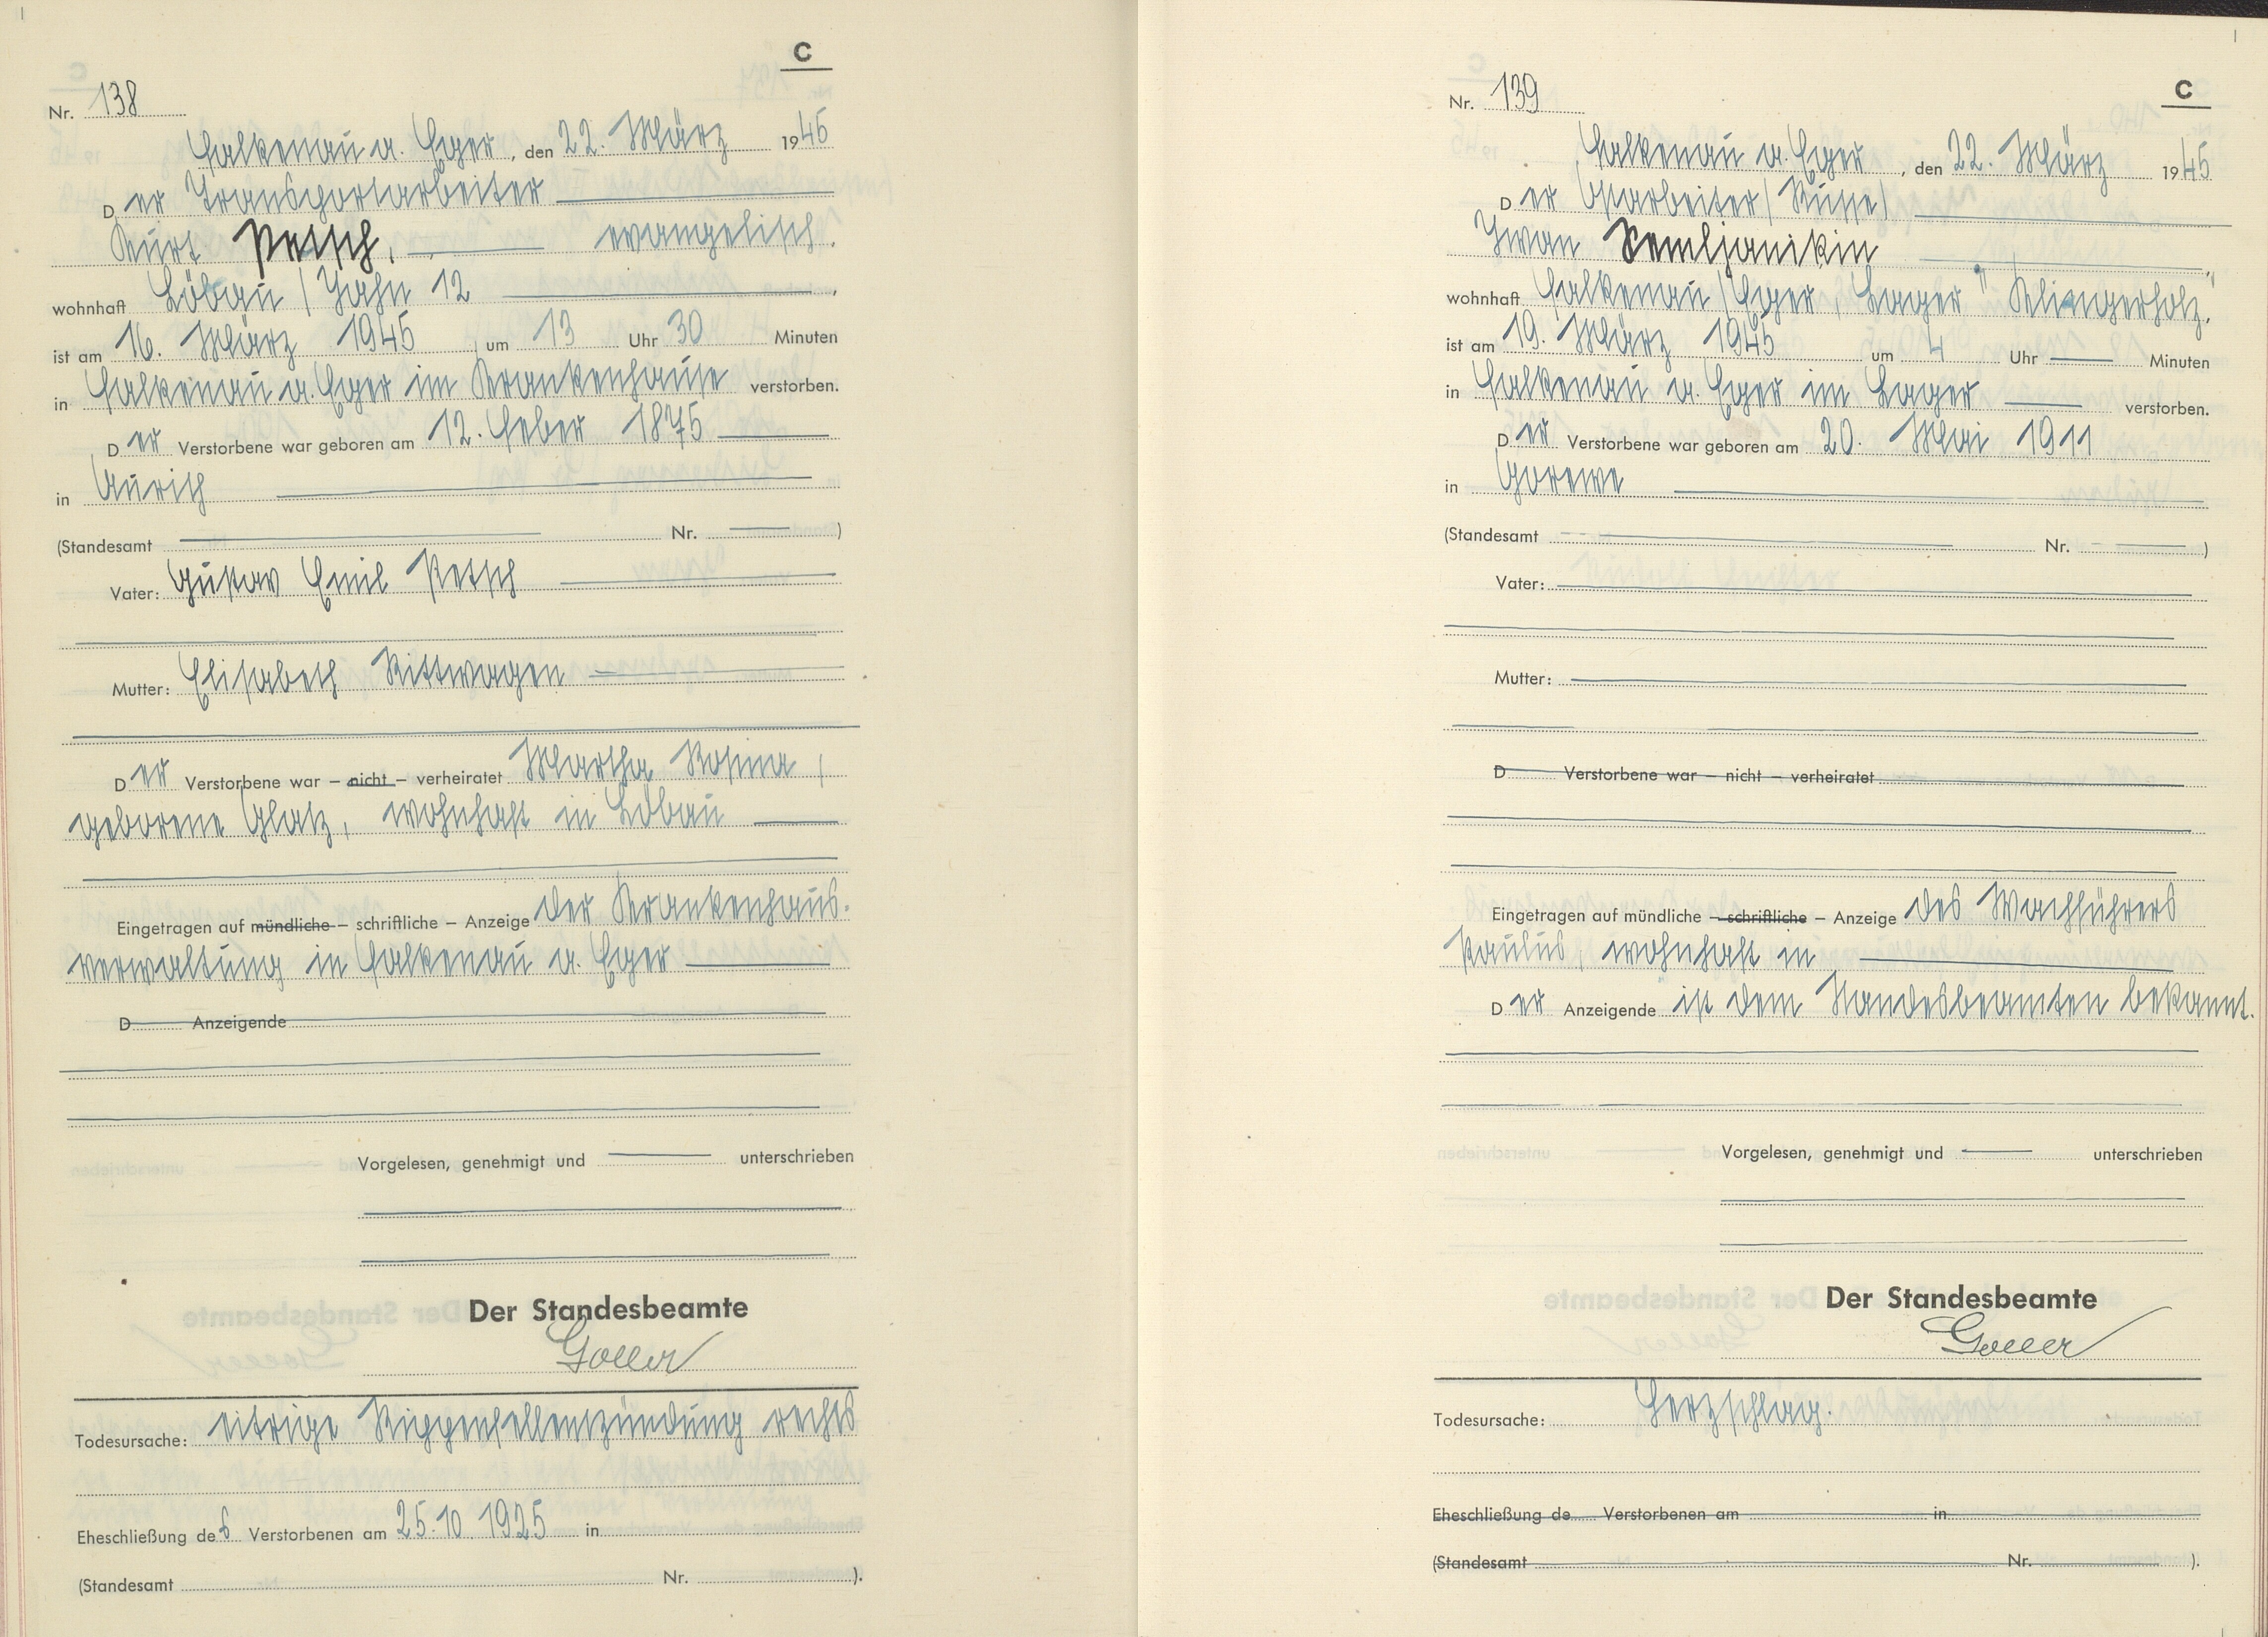 C
Nr. 138
Falkenau a. Eger, den 22. März 1945
Der Transportarbeiter
Kurt Petsch, evangelisch.
wohnhaft Löbau / Jahn 12,
ist am 16. März 1945 um 13 Uhr 30 Minuten
in Falkenau a. Eger im Krankenhause verstorben.
Der Verstorbene war geboren am 12. Feber 1875
in Aurith
(Standesamt Nr. )
Vater: Gustav Emil Petsch
Mutter: Elisabeth Rittwagen
Der Verstorbene war – nicht – verheiratet Martha Rosina,
geborene Glatz, wohnhaft in Löbau
Eingetragen auf mündliche – schriftliche – Anzeige der Krankenhaus-
verwaltung in Falkenau a. Eger
D Anzeigende
Vorgelesen, genehmigt und unterschrieben
Der Standesbeamte
Goller
Todesursache: eitrige Rippenfellentzündung rechts
Eheschließung des Verstorbenen am 25.10.1925 in
(Standesamt Nr. ).
C
Nr. 139
Falkenau a. Eger, den 22. März 1945
Der Ostarbeiter (Russe)
Iwan Semljanikin
wohnhaft Falkenau / Eger, Lager "Klingerholz",
ist am 19. März 1945 um 4 Uhr Minuten
in Falkenau a. Eger im Lager verstorben.
Der Verstorbene war geboren am 20. Mai 1911
in Gorewe
(Standesamt Nr. )
Vater:
Mutter:
D Verstorbene war – nicht – verheiratet
Eingetragen auf mündliche – schriftliche – Anzeige des Wachführers
Paulus, wohnhaft in
Der Anzeigende ist dem Standesbeamten bekannt.
Vorgelesen, genehmigt und unterschrieben
Der Standesbeamte
Goller
Todesursache: Herzschlag.
Eheschließung de Verstorbenen am in
(Standesamt Nr. ).